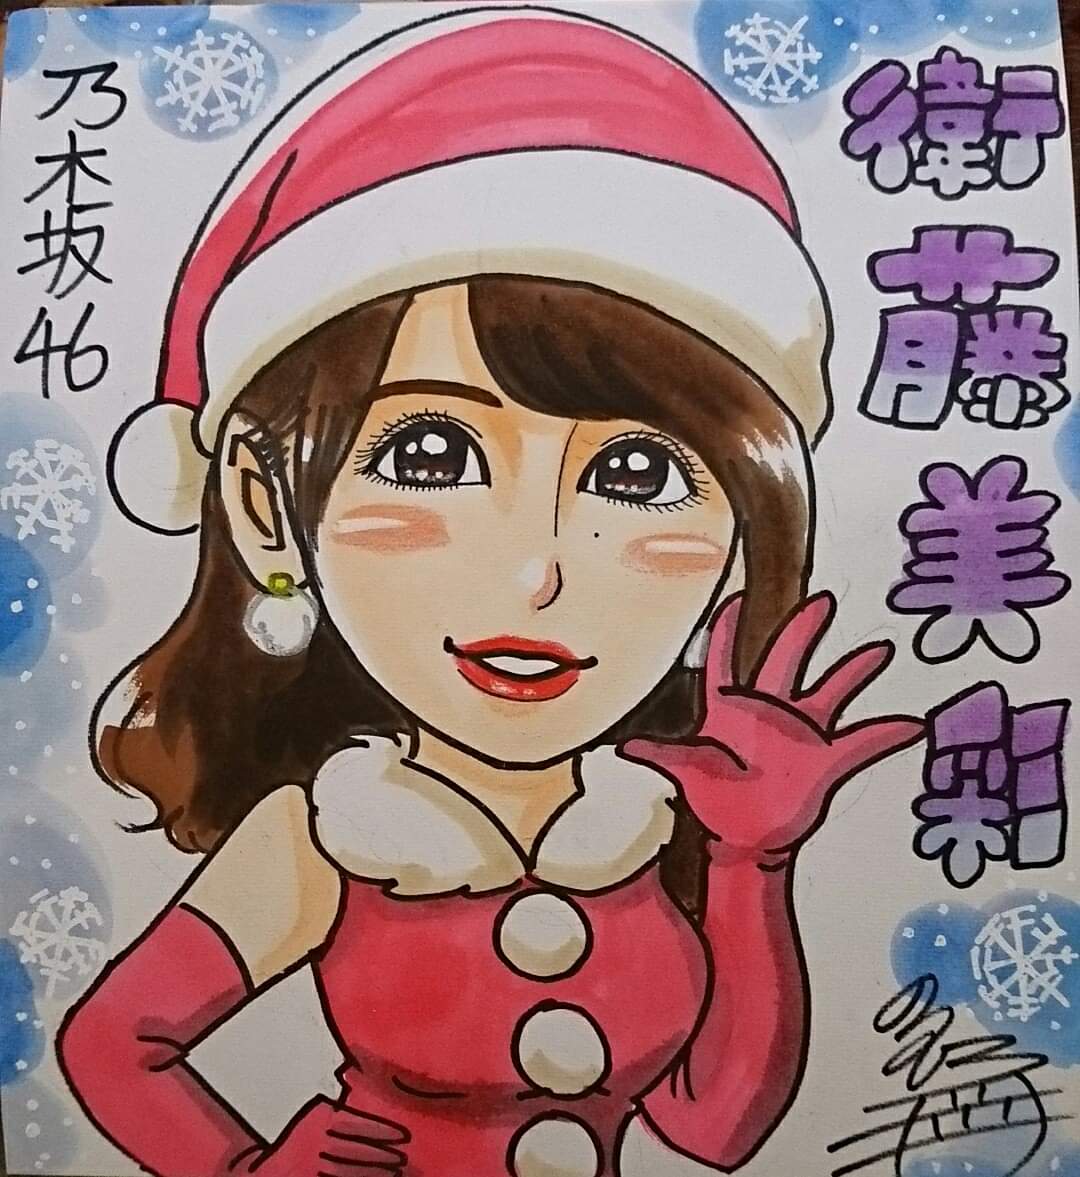 乃木坂46
衛藤美彩